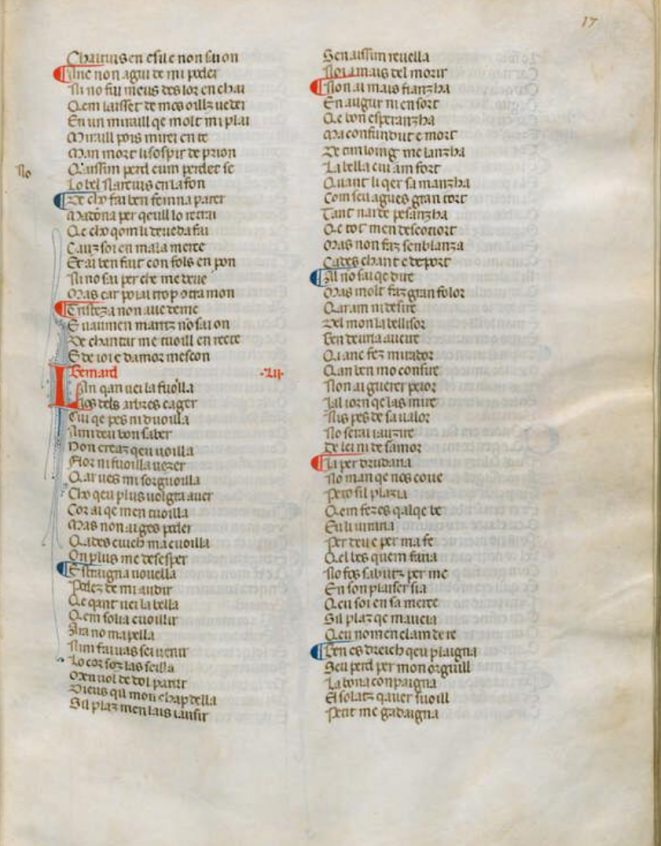 17
Chaitius en esil e non sai on
Anc non agui de mi poder
Ni no fui meus des lor en chai
Qem laisset de mos oillz uezer
En un miraill qe molt mi plai
Miraill pois mirei en te
Man mort li sospir de prion
Qaissim perd cum perdet se
Lo bel Narcius en la fon
De cho fai ben femna parer
Ma dona per qeuill lo retrai
Qe cho qom li deueda fai
Cauz soi en mala merce
Et ai ben fait con fols en pon
Ni no sai per che me deue
Mas car poiai trop otra mon
Tristeza non aue de me
Eu aumen mantz no sai on
De chantar me tuoill en recre
E de ioi e damor mescon
Bernard .xii.
Lan qan uei la fuoilla
Ios dels arbres cager
Cui qe pes ni duoilla
A mi deu bon saber
Non crezaz qeu uoilla
Flor ni fuoilla uezer
Qar ues mi sorguoilla
Cho qeu plus uolgra auer
Cor ai qe men tuoilla
Mas non ai ges poder
Qades cuich macuoilla
On plus me desesper
Estraigna nouella
Podez de mi audir
Qe qant uei la bella
Qem solia cuoillir
Ara no mapella
Nim fai uas sei uenir
Lo cor soz las seilla
Me uol de dol partir
Dieus qui mon chapdella
Sil plaz men lais iauzir
Sen aissim reuella
Noi a mais del morir
Non ai mais fianzha
En augur ni en sort
Qe bon esperanzha
Ma confundut e mort
Qe tan loing me lanzha
La bella cui am fort
Quant li qer sa manzha
Com seu agues gran tort
Tant nai de pesanzha
Qe tot men desconort
Mas non faz senblanza
Cades chant e deport
Al no sai qe dire
Mas molt faz gran folor
Qar am ni desire
Del mon la bellisor
Ben deuria aucire
Qi anc fez mirador
Qan ben mo consire
Non ai guerer peior
Ial iorn qe las mire
Nis pes de sa ualor
No serai iauzire
De lei ni de samor
Ia per drudaria
No man qe nos coue
Pero sil plazia
Qem fezes qalqe be
Eu li iuraria
Per leu e per ma fe
Qel bes quem faria
No fos sabutz per me
En son plaiser sia
Qeu soi en sa merce
Sil plaz qe maucia
Qeu no men clam de re
Ben es dreich qeu plaigna
Seu perd per mon orguill
La bona conpaigna
El solatz qauer suoill
Petit me gadaigna